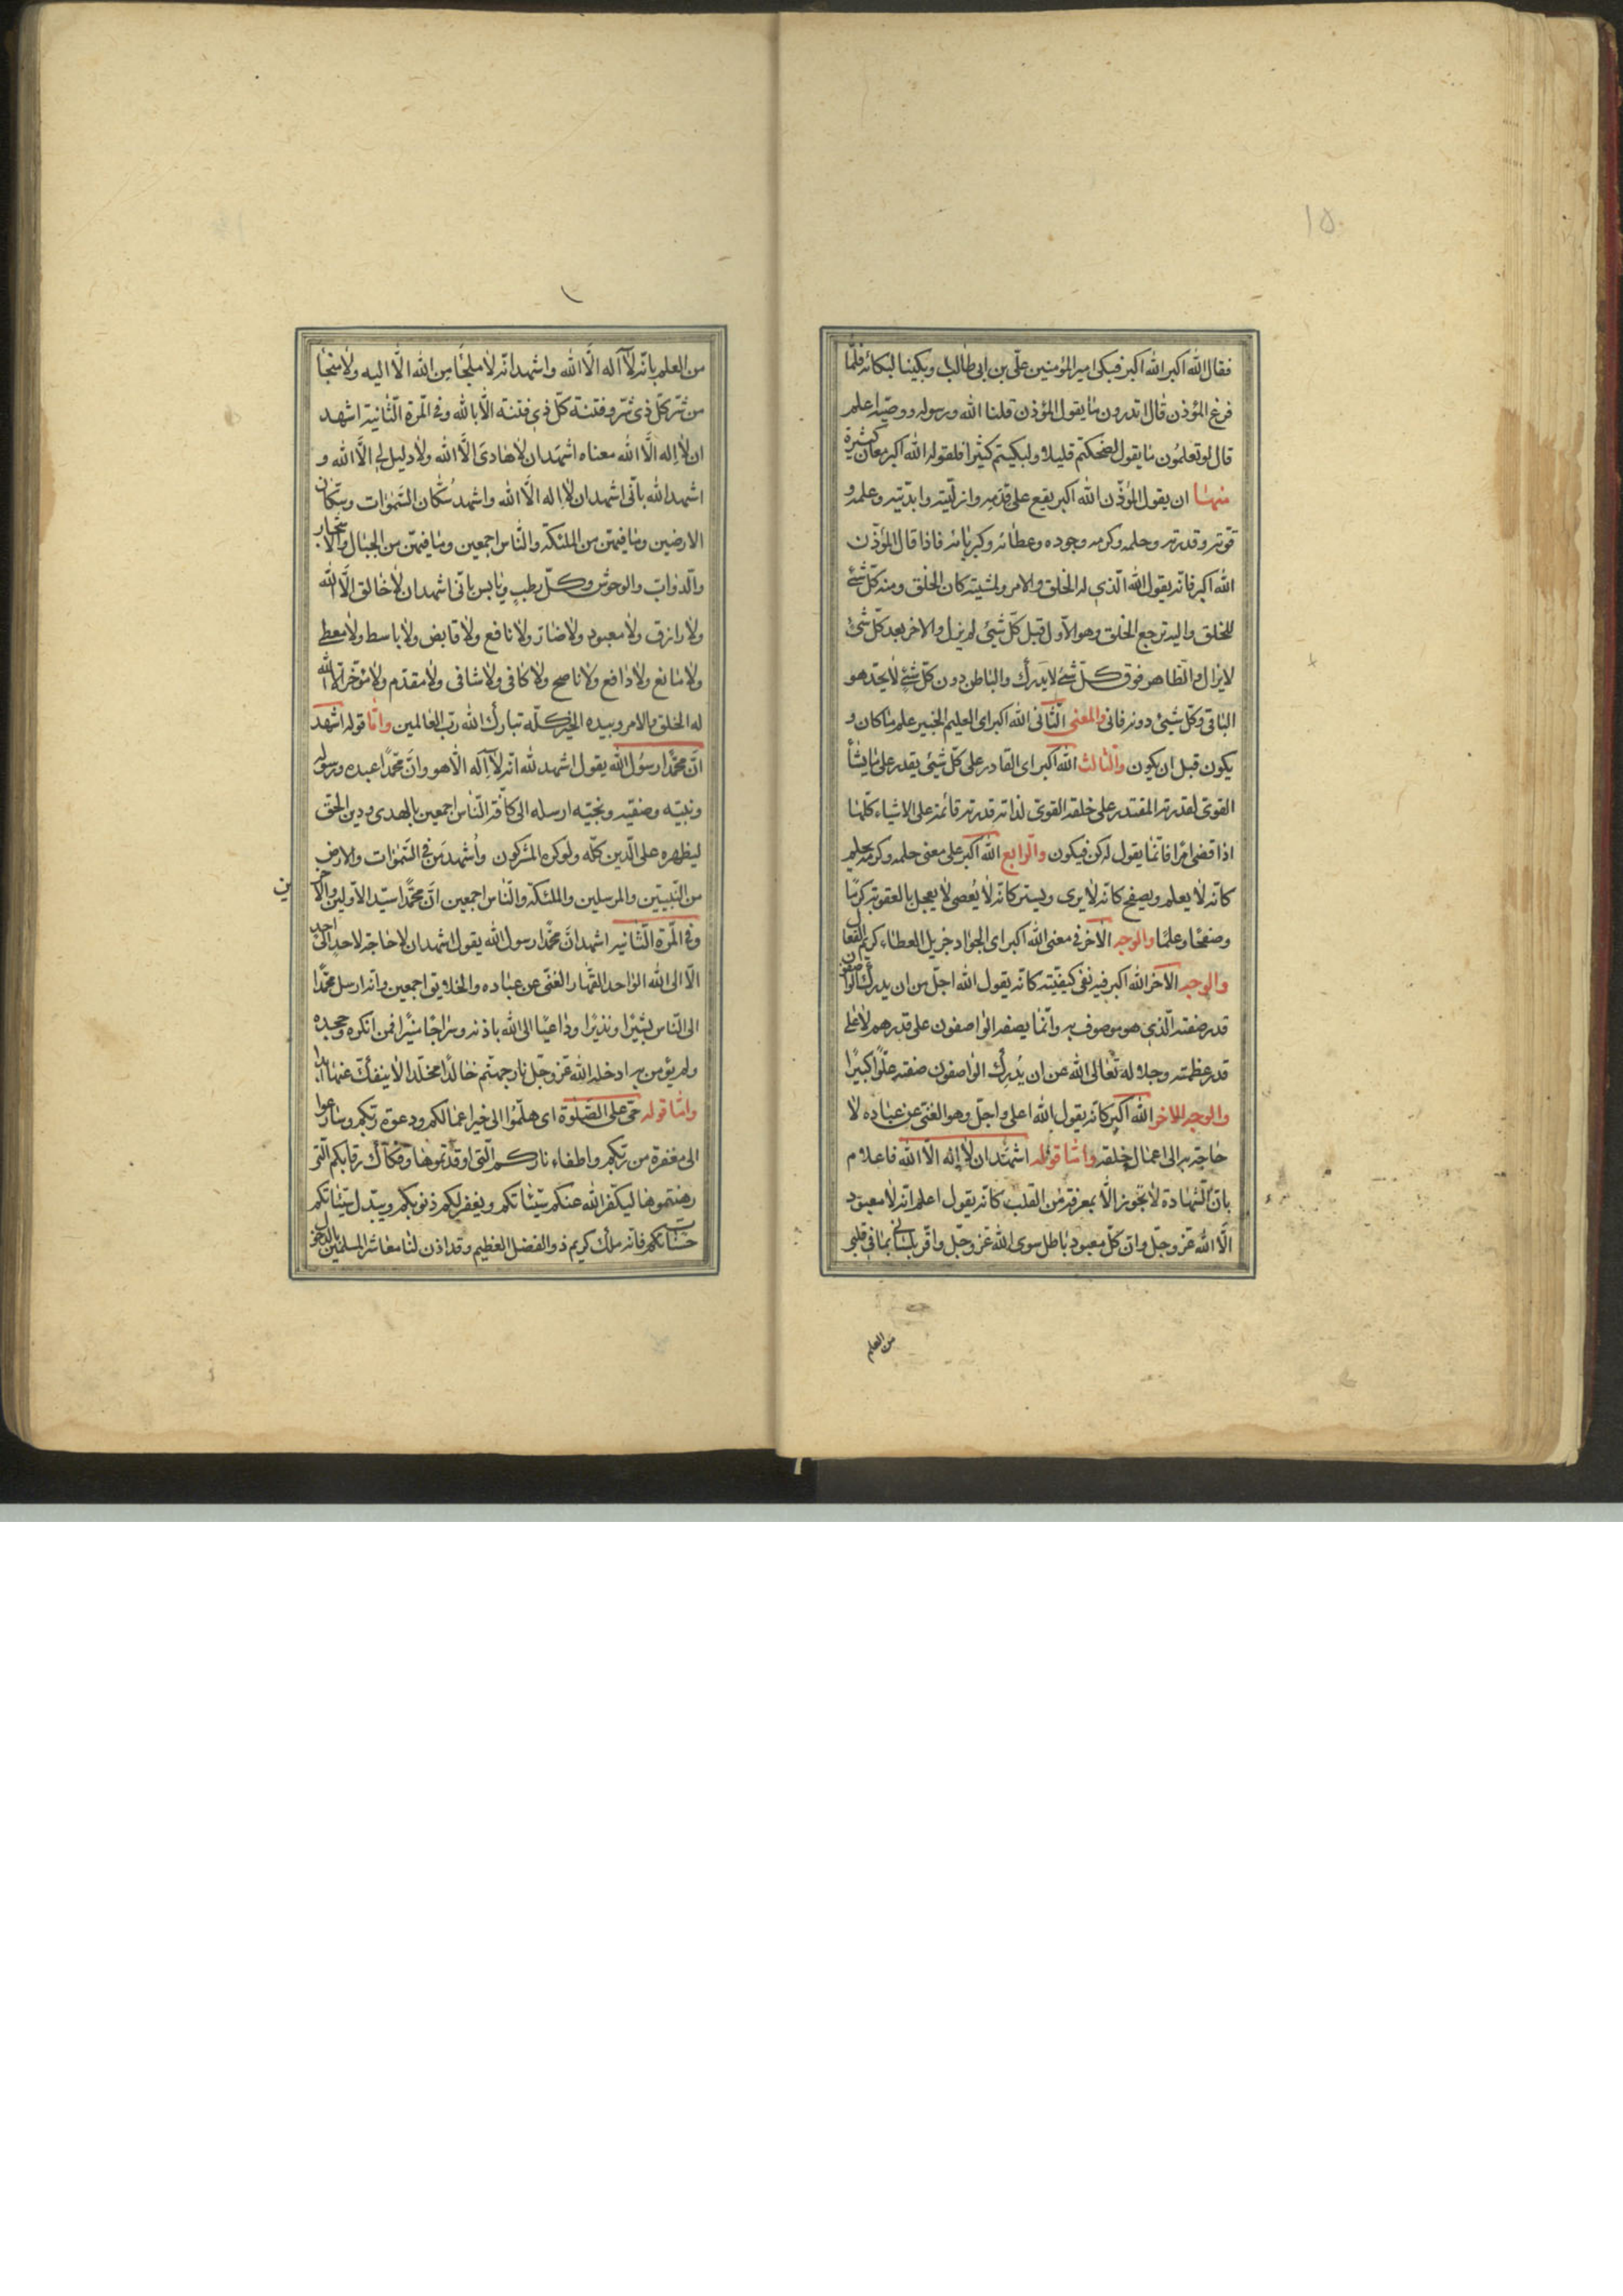 ١٥
فقال الله اكبر الله اكبر فبكى امير المؤمنين علىّ بن ابى طالب وبكينا لبكائه فلمّا
فرغ المؤذن قال اتدرون ما يقول المؤذن قلنا الله ورسوله ووصيّه اعلم
قال لو تعلمون ما يقول لضحكتم قليلا ولبكيتم كثيرا فلقوله الله اكبر معان كثيرة
منها ان يقول المؤذّن الله اكبر يقع على قدمه وازليّته وابديّته وعلمه و
قوّته وقدرته وحلمه وكرمه وجوده وعطائه وكبريائه فاذا قال المؤذّن
الله اكبر فانّه يقول الله الّذى له الخلق والامر وبمشيته كان الخلق ومنه كلّ شئ
للخلق واليه ترجع الخلق وهو الاوّل قبل كلّ شئ لم يزل والاخر بعد كلّ شئ
لا يزال والظّاهر فوق كلّ شئ لا يدرك والباطن دون كلّ شئ لا يحدّ هو
الباقى وكلّ شئ دونه فانى والمعنى الثّانى الله اكبر اى العليم الخبير علم ما كان و
يكون قبل ان يكون والثّالث الله اكبر اى القادر على كلّ شئ يقدر على ما يشأ
القوىّ لقدرته المقتدر على خلقه القوىّ لذاته قدرته قائمة على الاشياء كلّها
اذا قضى امرا فانّما يقول له كن فيكون والرّابع الله اكبر على معنى حلمه وكرمه يحلم
كانّه لا يعلم ويصفح كانّه لا يرى ويستر كانّه لا يُعصى لا يعجل بالعقوبة كرمًا
وصفحًا وعلمًا والوجه الاخر فى معنى الله اكبر اى الجواد جزيل العطاء كريم الفعال
والوجه الاخر الله اكبر فيه نفى كيفيّته كانّه يقول الله اجلّ من ان يدرك الواصفون
قدر صفته الّذى هو موصوف به وانّما يصفه الواصفون على قدرهم لا على
قدر عظمته وجلاله تعالى الله عن ان يُدرك الواصفون صفته علوًّا كبيرًا
والوجه الاخر الله اكبر كانّه يقول الله اعلى واجلّ وهو الغنى عن عباده لا
حاجة به الى اعمال خلقه وامّا قوله اشهد ان لا إله الّا الله فاعلام
بانّ الشّهادة لا تجوز الّا بمعرفة من القلب كانّه يقول اعلم انّه لا معبود
الّا الله عزّ وجلّ وانّ كلّ معبود باطل سوى الله عزّ وجلّ واقرّ بلسانى بما فى قلبى
من العلم
من العلم بانّه لا آله الّا الله واشهد انّه لا ملجًا من الله الّا اليه ولا منجًا
من شرّ كلّ ذى شرّ وفتنة كلّ ذى فتنة الّا بالله وفى المرّة الثّانية اشهد
ان لا اله الّا الله معناه اشهد ان لا هادى الّا الله ولا دليل لى الّا الله و
اشهد الله بانّى اشهد ان لا اله الّا الله واشهد سُكّان السّموات وسكّان
الارضين وما فيهنّ من الملئكة والنّاس اجمعين وما فيهنّ من الجبال والاشجار
والدّوابّ والوحوش وكلّ رطب ويابس بانّى اشهد ان لا خالق الّا الله
ولا رازق ولا معبود ولا ضارّ ولا نافع ولا قابض ولا باسط ولا معطى
ولا مانع ولا دافع ولا ناصح ولا كافى ولا شافى ولا مقدّم ولا مؤخّر الّا الله
له الخلق والامر وبيده الخير كلّه تبارك الله ربّ العالمين وامّا قوله اشهد
انّ محمّدًا رسول الله يقول اشهد لله انّه لا آله الّا هو وانّ محمّدًا عبده ورسوله
ونبيّه وصفيّه ونجيّه ارسله الى كافّة النّاس اجمعين بالهدى ودين الحقّ
ليظهره على الّدين كلّه ولو كره المشركون واُشهد من فى السّموات والارض
من النّبيّين والمرسلين والملئكة والنّاس اجمعين انّ محمّدًا سيّد الاوّلين والاخرين
وفى المرّة الثّانيه اشهد انّ محمّدا رسول الله يقول اشهد ان لا حاجة لاحد الى احد
الّا الى الله الواحد القهّار الغنىّ عن عباده والخلايق اجمعين وانّه ارسل محمّدًا
الى النّاس بشيرًا ونذيرًا وداعيًا الى الله باذنه وسراجًا منيرًا فمن انكره وجحده
ولم يؤمن به ادخله الله عزّ وجلّ نار جهنّم خالدًا مخلّدا لا ينفكّ عنها ابدا
وامّا قوله حىّ على الصّلوة اى هلمّوا الى خير اعمالكم ودعوة ربّكم وسارعوا
الى مغفرة من ربّكم واطفاء ناركم الّتى اوقدتموها وفكاك رقابكم الّتى
رهنتموها ليكفّر الله عنكم سيّئاتكم ويغفر لكم ذنوبكم ويبدّل سيّئاتكم
حسناتكم فانّه ملك كريم ذو الفضل العظيم وقد اذن لنا معاشر المسلمين بالدخول